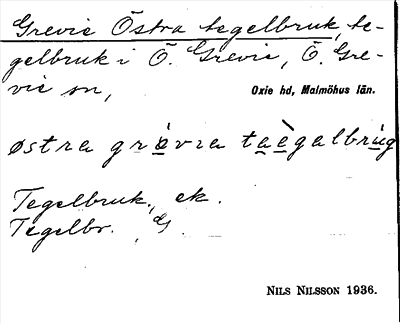 Grevie Östra tegelbruk, te-
gelbruk i Ö. Grevie, Ö. Gre-
vie sn,
Oxie hd, Malmöhus län.
østra grèvia taègalbrug
Tegelbruk., ek.
Tegelbr. G.
NILS NILSSON 1936.